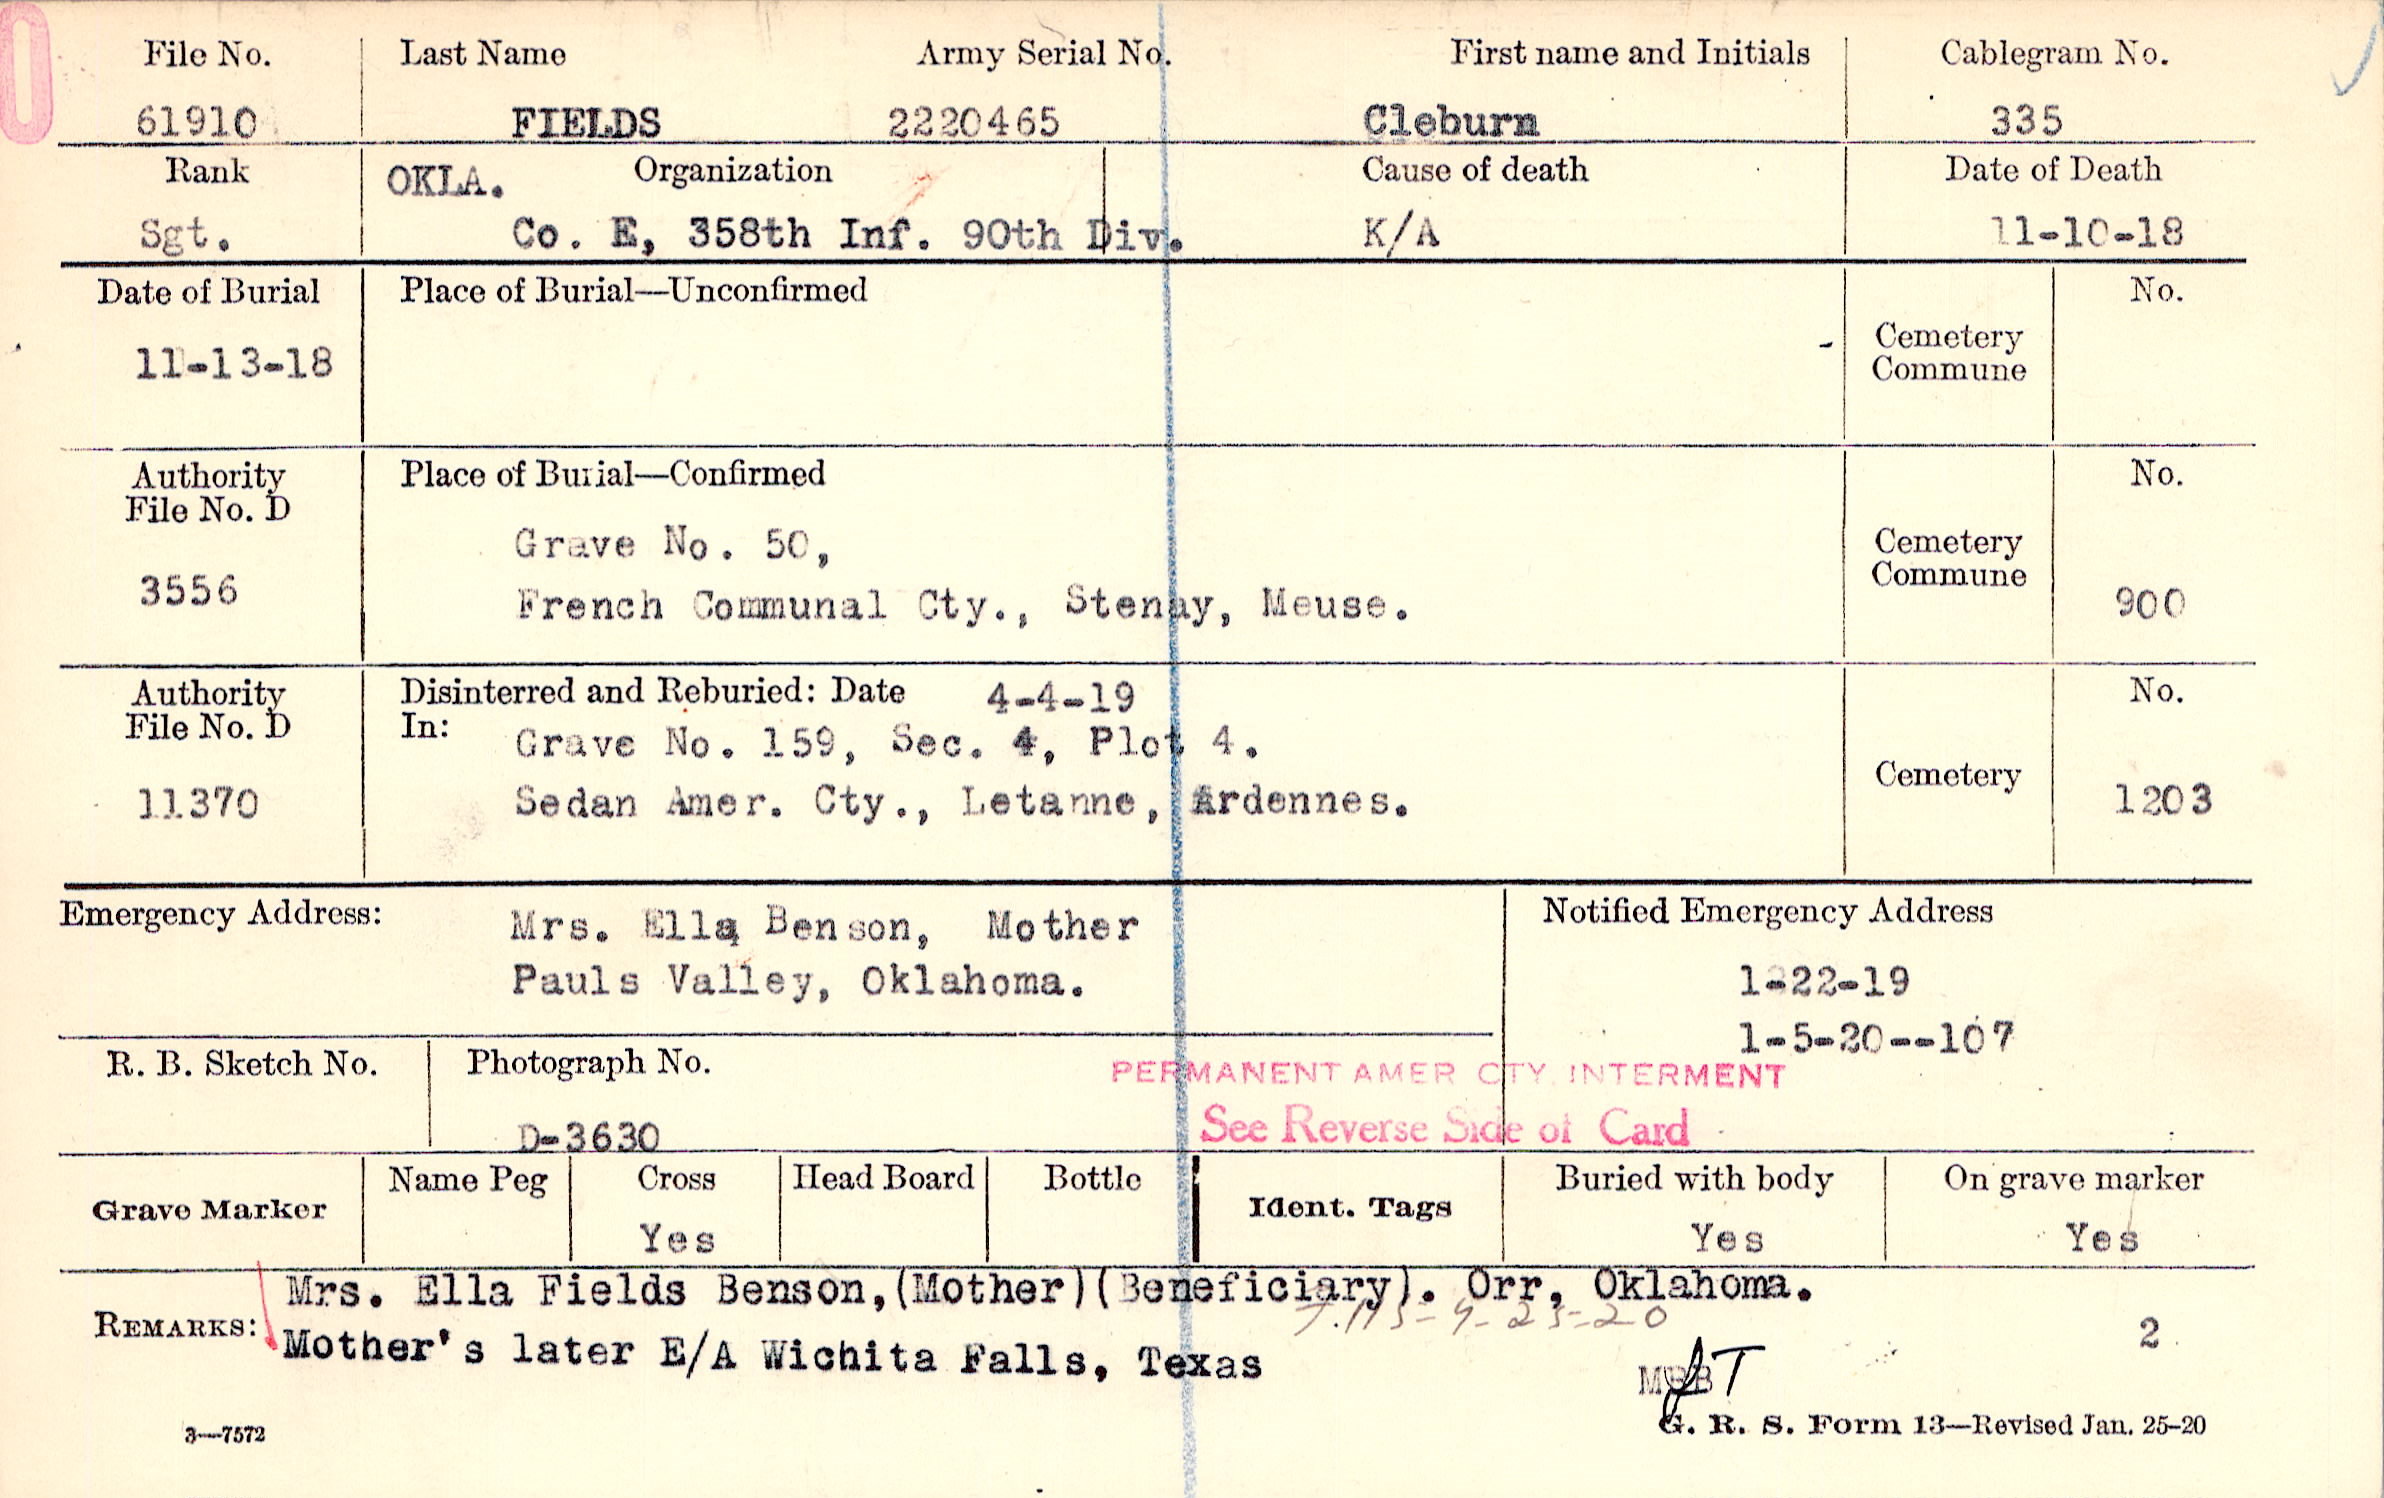 File No. Last Name Army Serial No. First name and Initials Cablegram No.
61910 FIELDS 2220465 Cleburn 335
Rank OKLA. Organization Cause of death Date of Death
Sgt. Co. E, 358th Inf. 90th Div. K/A 11-10-18
Date of Burial Place of Burial—Unconfirmed No.
11-13-18 Cemetery
Commune
Authority Place of Burial—Confirmed No.
File No. D
Grave No. 50, Cemetery
3556 Commune
French Communal Cty., Stenay, Meuse. 900
Authority Disinterred and Reburied: Date 4-4-19 No.
File No. D In: Grave No. 159, Sec. 4, Plot 4.
Cemetery
11370 Sedan Amer. Cty., Letanne, Ardennes. 1203
Emergency Address: Mrs. Ella Benson, Mother Notified Emergency Address
Pauls Valley, Oklahoma. 1-22-19
1-5-20--107
R. B. Sketch No. Photograph No. PERMANENT AMER CTY. INTERMENT
See Reverse Side of Card
D-3630
Name Peg Cross Head Board Bottle Buried with body On grave marker
Grave Marker Ident. Tags
Yes Yes Yes
Mrs. Ella Fields Benson,(Mother)(Beneficiary). Orr, Oklahoma.
REMARKS: 2
Mother's later E/A Wichita Falls, Texas
3—7572 G. R. S. Form 13—Revised Jan. 25-20